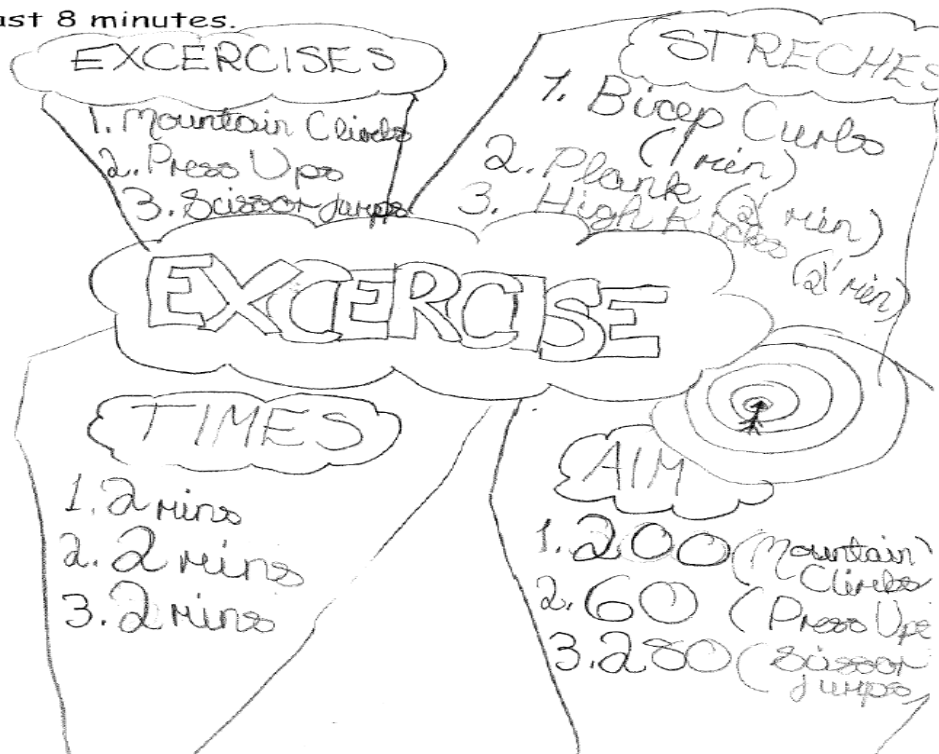 ast 8 minutes.
EXCERCISES
1. Mountain Climbs
2. Press Ups
3. Scissor Jumps
STRECHES
1. Bicep Curls
(1 min)
2. Plank (2 min)
3. High Kicks
(2 min)
EXCERCISE
TIMES
1. 2 mins
2. 2 mins
3. 2 mins
AIM
1. 200 (Mountain
Climbs
2. 60 (Press Ups
3. 280 (Scissor
Jumps